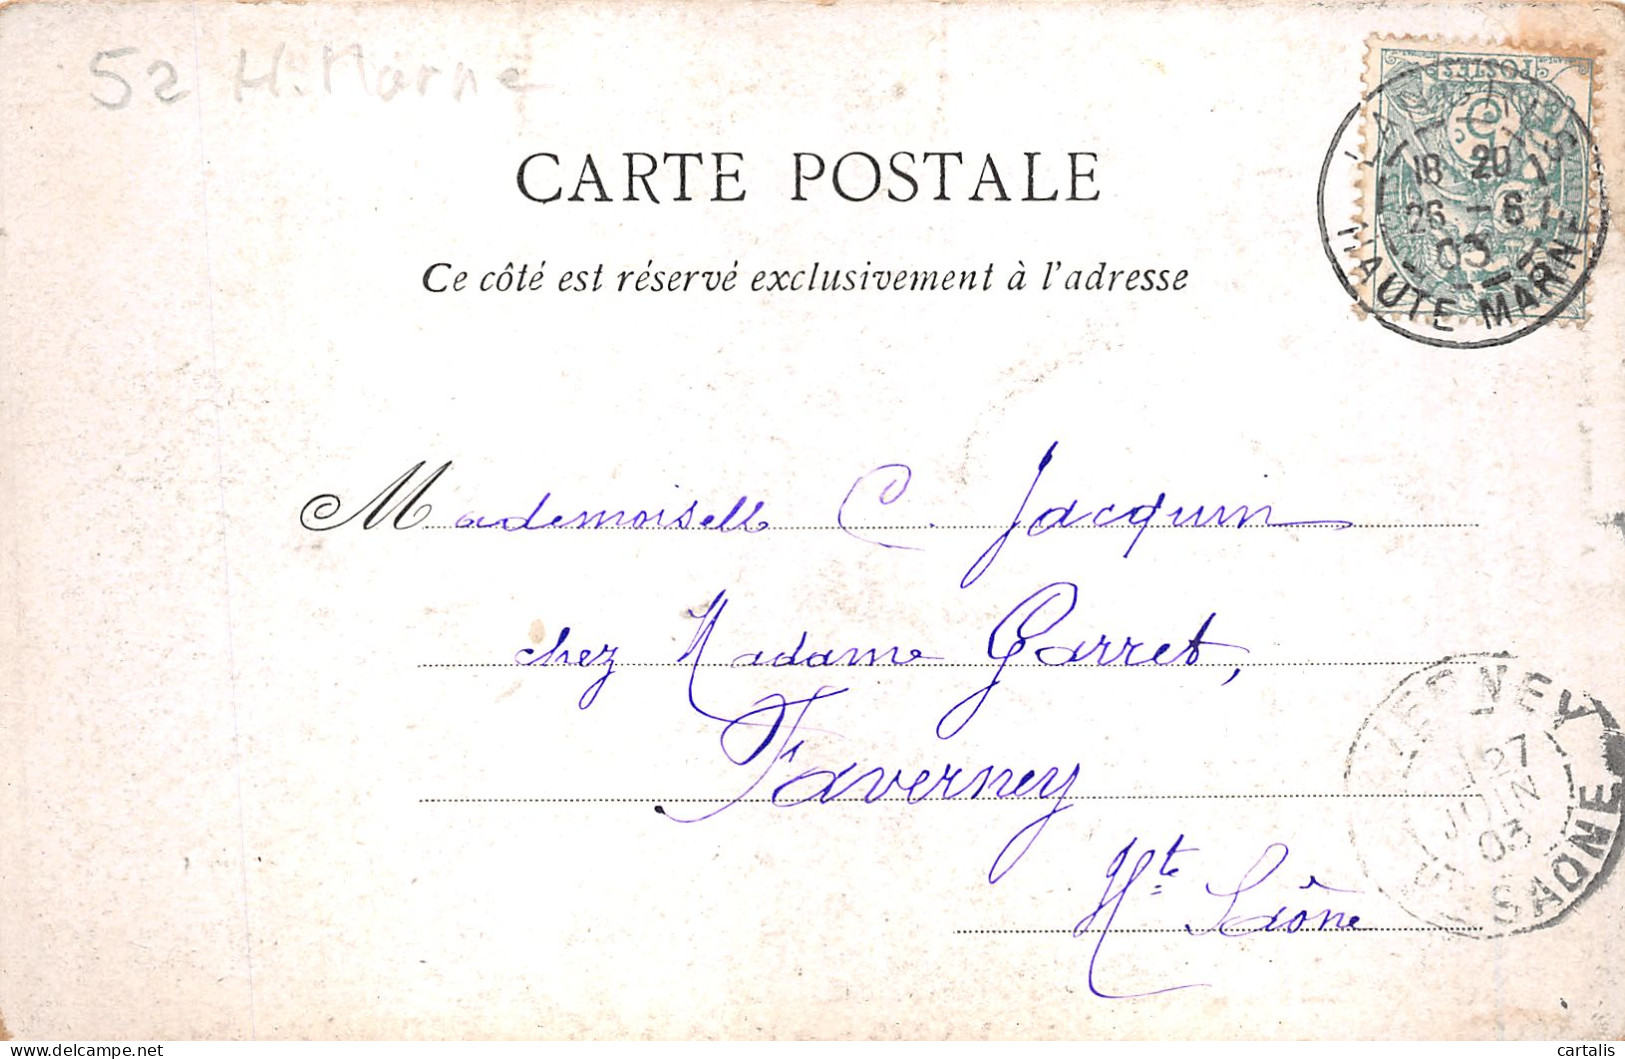 52 H. Marne
CARTE POSTALE
Ce côté est réservé exclusivement à l'adresse
POSTES
18 20
26 - 6
03
HAUTE MARNE
Mademoiselle C. Jacquin
chez Madame Garret,
Faverney
Hte Saône
27
JUIN
03
SAONE
delcampe.net
cartalis